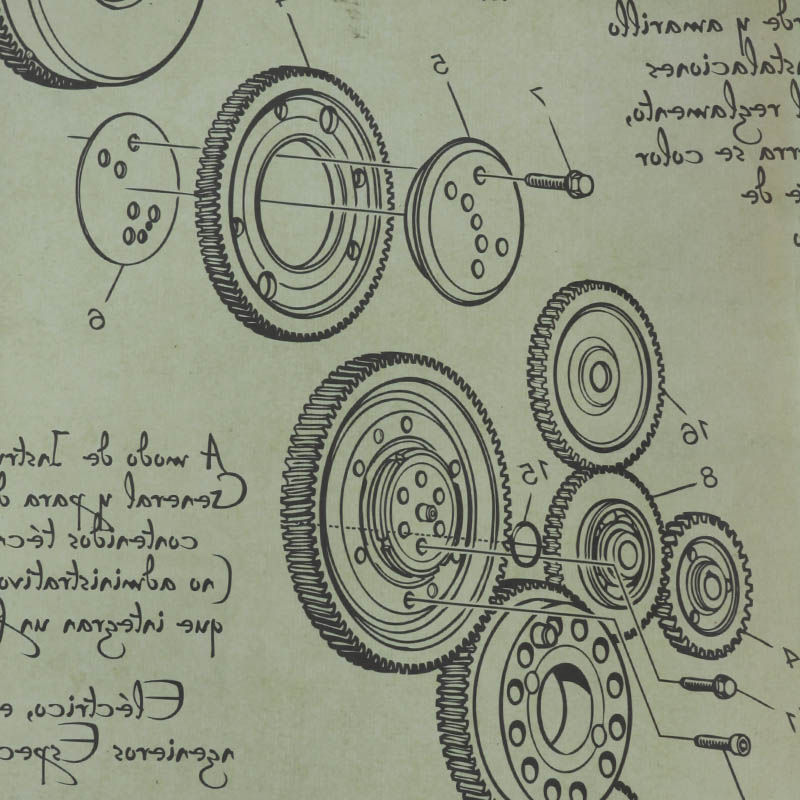 rde y amarillo
nstalaciones
l reglamento,
rra se color
de
4
5
7
6
16
15
8
4
A modo de Instr
General y para d
contenidos técn
(no administrativo
que integran un
Eléctrico, e
ngenieros Espec